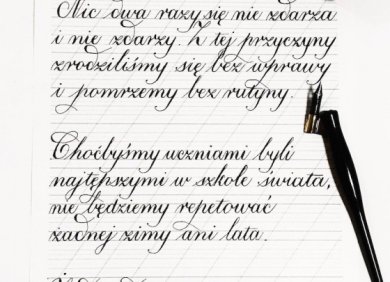 Nic dwa razy się nie zdarza
i nie zdarzy. Z tej przyczyny
zrodziliśmy się bez wprawy
i pomrzemy bez rutyny.
Choćbyśmy uczniami byli
najtępszymi w szkole świata,
nie będziemy repetować
żadnej zimy ani lata.